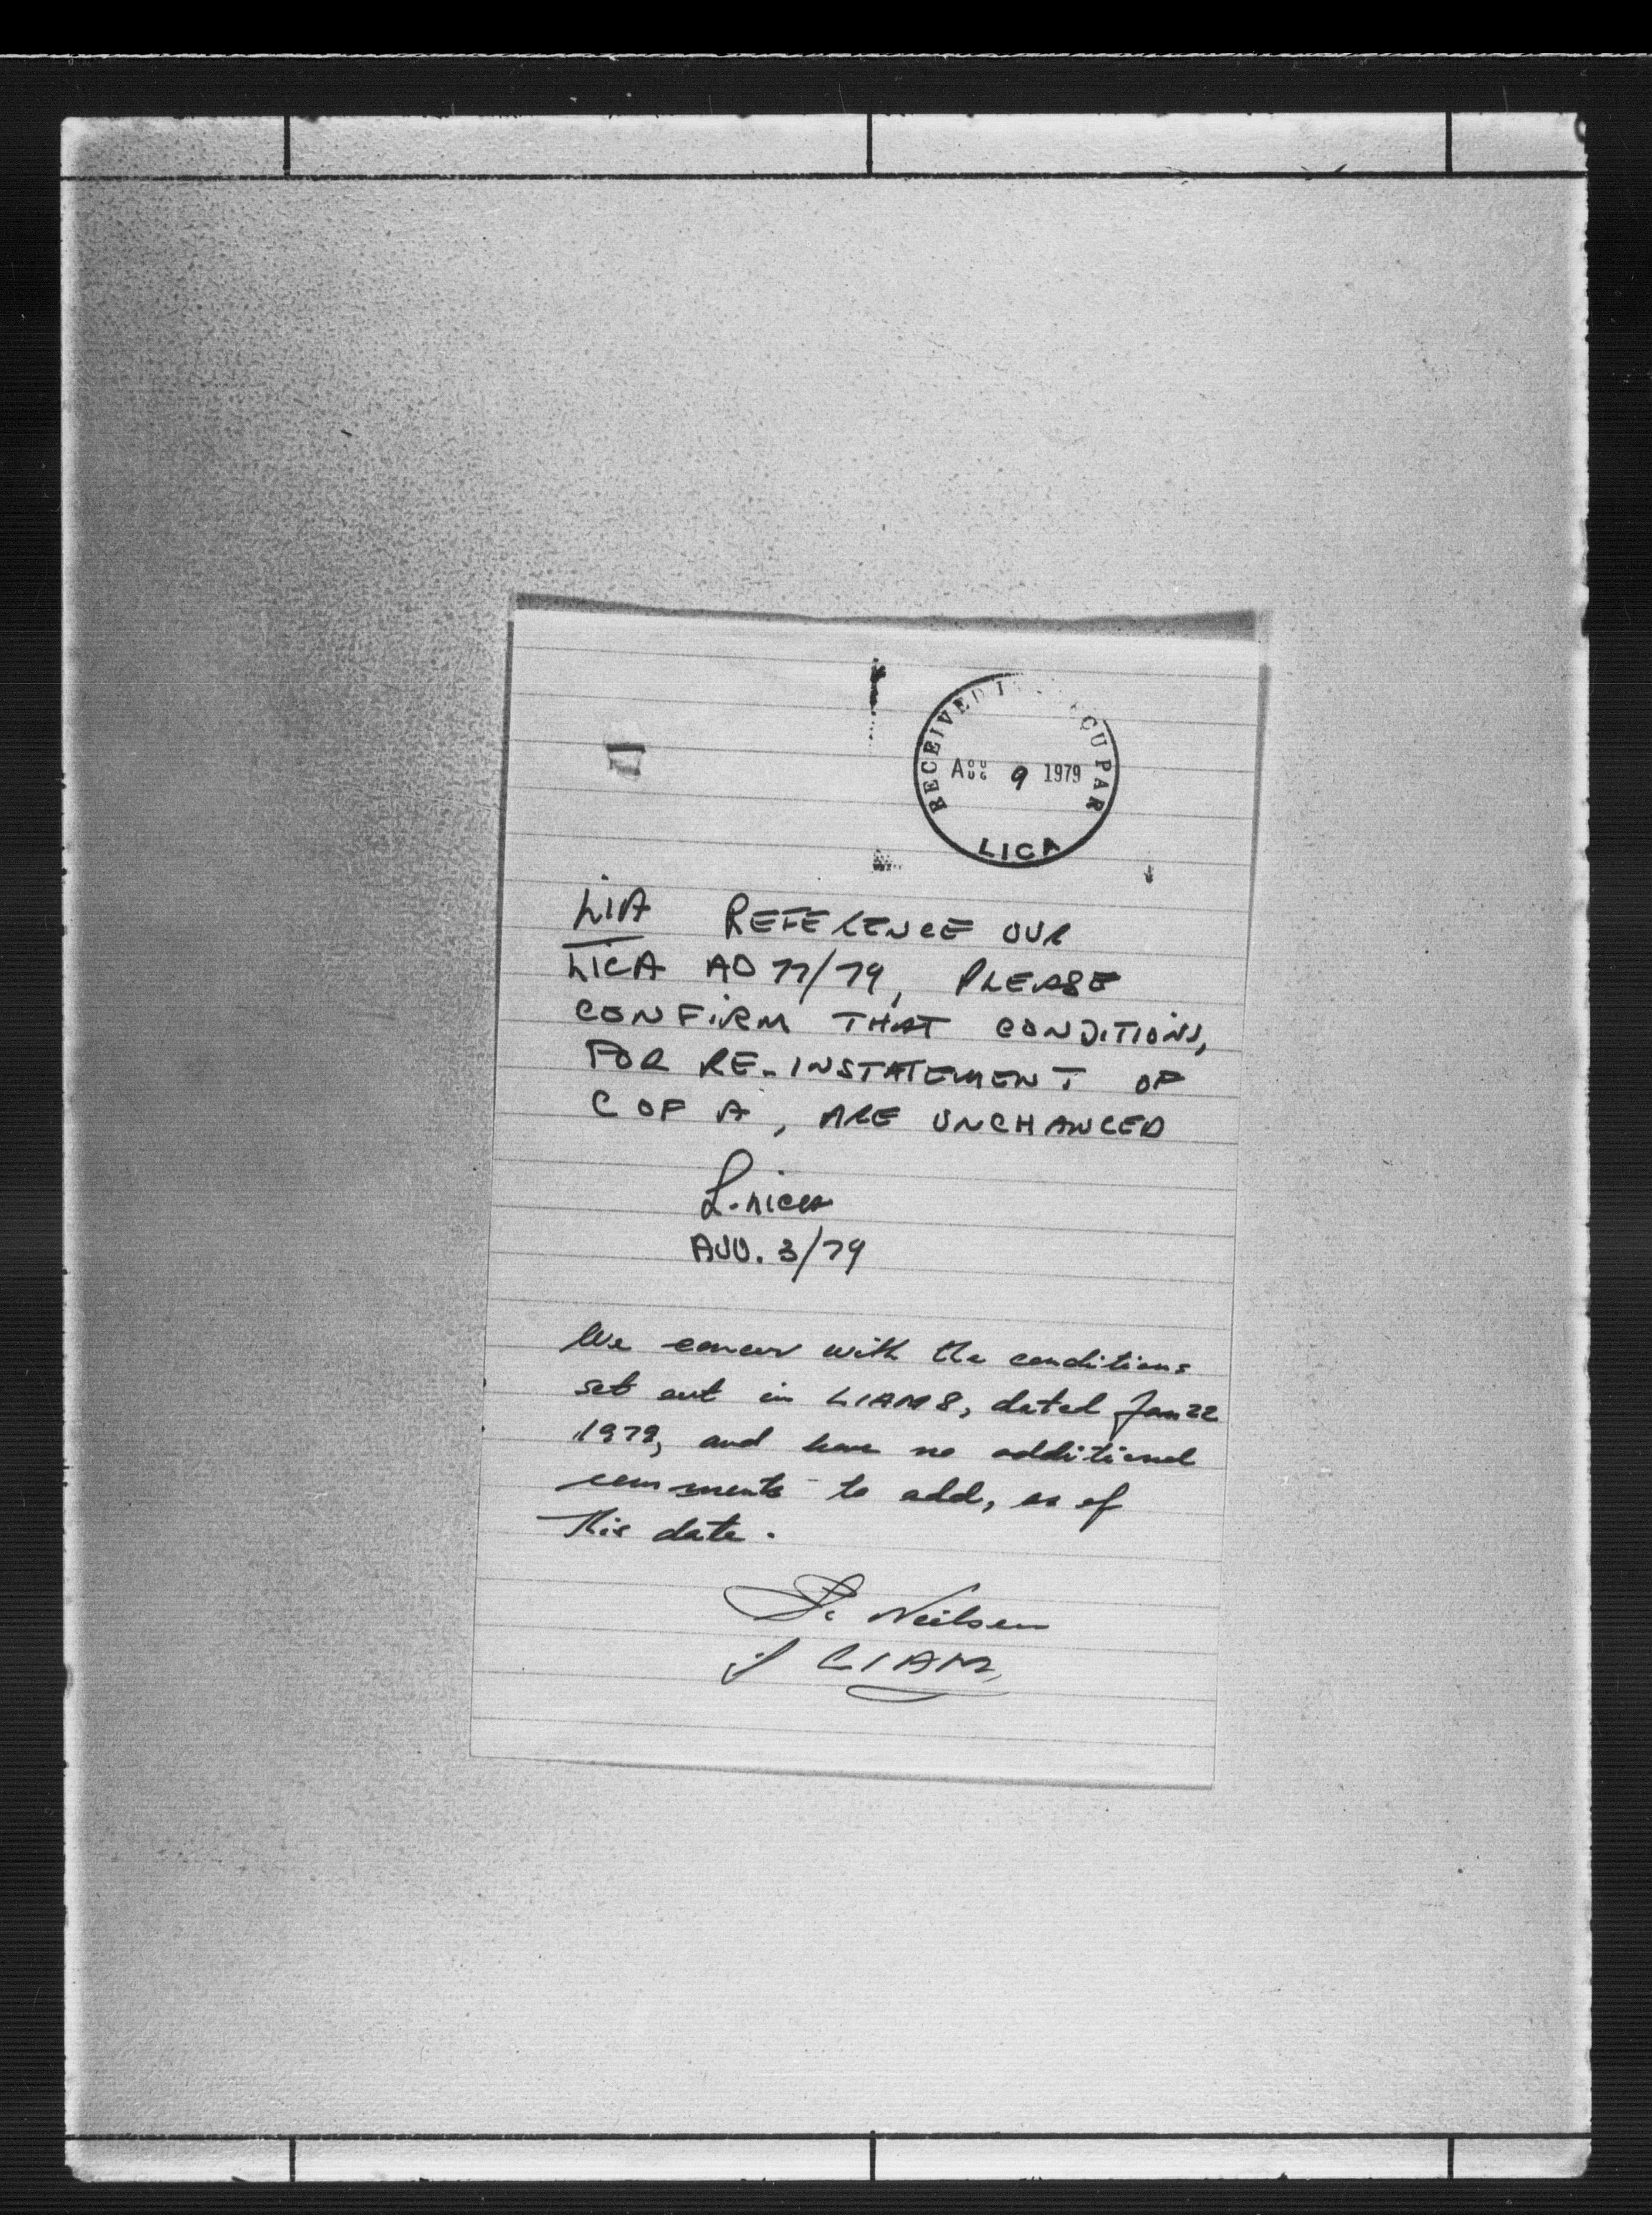 RECEIVED REÇU PAR
AUG AOU 9 1979
LICA
LIA REFERENCE OUR
LICA AO 77/79, PLEASE
CONFIRM THAT CONDITIONS,
FOR RE-INSTATEMENT OF
C OF A, ARE UNCHANGED
AUG. 3/79
We concur with the conditions
set out in LIAM 8, dated Jan 22
1979, and have no additional
comments to add, as of
this date.
Neilsen
LIAM